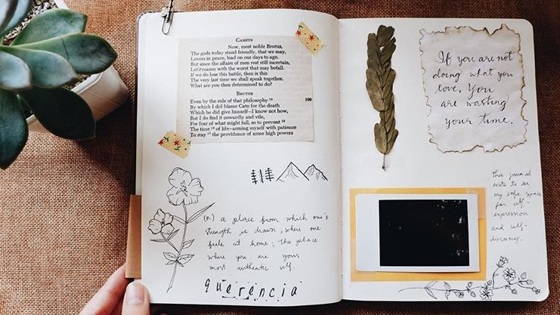 CASSIUS
Now, most noble Brutus,
The gods today stand friendly, that we may,
Lovers in peace, lead on our days to age.
But since the affairs of men rest still incertain,
Let's reason with the worst that may befall.
If we do lose this battle, then is this
The very last time we shall speak together.
What are you then determined to do?
BRUTUS
Even by the rule of that philosophy 100
By which I did blame Cato for the death
Which he did give himself—I know not how,
But I do find it cowardly and vile,
For fear of what might fall, so to prevent
The time of life—arming myself with patience
To stay the providence of some high powers
(n.) a place from which one's
strength is drawn, where one
feels at home; the place
where you are your
most authentic self.
querencia
If you are not
doing what you
love, you
are wasting
your time.
this journal
is to be
my safe space
for self-
expression
and self-
discovery.